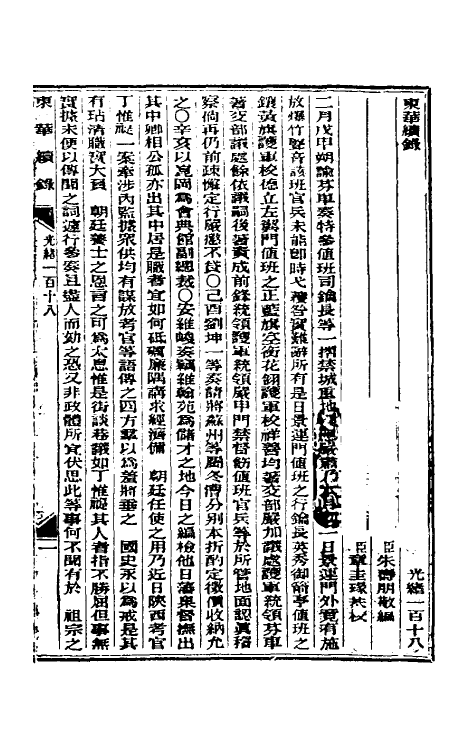 東華續錄
光緒一百十八
臣朱壽朋敬編
臣章圭瑑恭校
二月戊申朔諭芬車奏特參值班司鑰長等一摺禁城重地一日景運門外竟有施
放爆竹聲音該班官兵未能即時戈獲咎實難辭所有是日景運門值班之行鑰長英秀御前亭值班之
鑲黃旗護軍校德立左翼門值班之正藍旗空銜花翎護軍校祥晉均著交部嚴加議處護軍統領芬車
著交部議處餘依議嗣後著責成前鋒統領護軍統領嚴申門禁督飭值班官兵等於所管地面認真稽
察倘再仍前疎懈定行嚴懲不貸〇己酉劉坤一等奏請將蘇州等屬冬漕分別本折酌定徵價收納允
之〇辛亥以崑岡為會典館副總裁〇安維峻奏竊維翰苑為儲才之地今日之編檢他日藩臬督撫出
其中卿相公孤亦出其中居是職者宜如何砥礪廉隅講求經濟備 朝廷任使之用乃近日陝西考官
丁惟禔一案牽涉內監據眾供均有謀放考官等語傳之四方羣以為羞將垂之 國史永以為戒是其
有玷清職實大負 朝廷養士之恩言之可為太息惟是街談巷議如丁惟禔其人者指不勝屈但事無
實據未便以傳聞之詞遽行參奏且盡人而劾之恐又非政體所宜伏思此等事何不聞有於 祖宗之
東華續錄 光緒一百十八 一